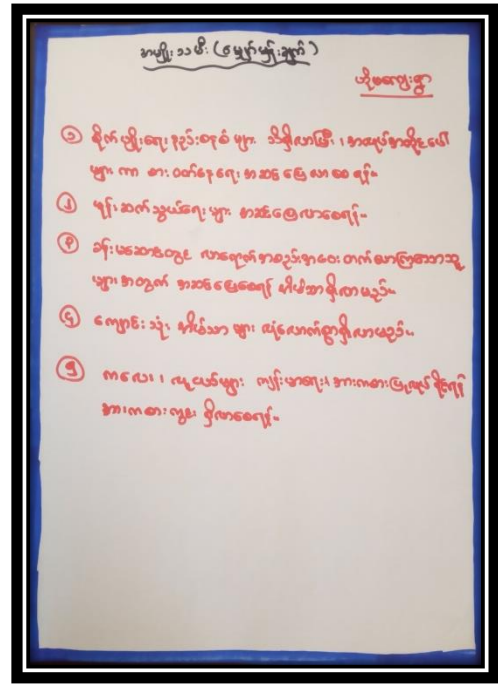 အမျိုးသမီး (မျှော်မှန်းချက်)
ဟိုမလျေးရွာ
၁ စိုက်ပျိုးရေးနည်းစနစ်များ သိရှိလာပြီး၊ အရပ်အတိုင်းပေါ်
များကာ စားဝတ်နေရေး အဆင်ပြေလာစေရန်။
၂ ဖုန်းဆက်သွယ်ရေးများ အဆင်ပြေလာစေရန်။
၃ ခန်းမဆောင်တွင် လာရောက်အစည်းအဝေးတက်သောကြသောသူ
များအတွက် အဆင်ပြေစေရန် အိမ်သာရှိလာမည်။
၄ ကျောင်းသုံး အိမ်သာများ လုံလောက်စွာရှိလာမည်။
၅ ကလေး၊ လူငယ်များ ကျန်းမာရေး၊ အားကစားပြုလုပ်နိုင်ရန်
အားကစားကွင်း ရှိလာစေရန်။